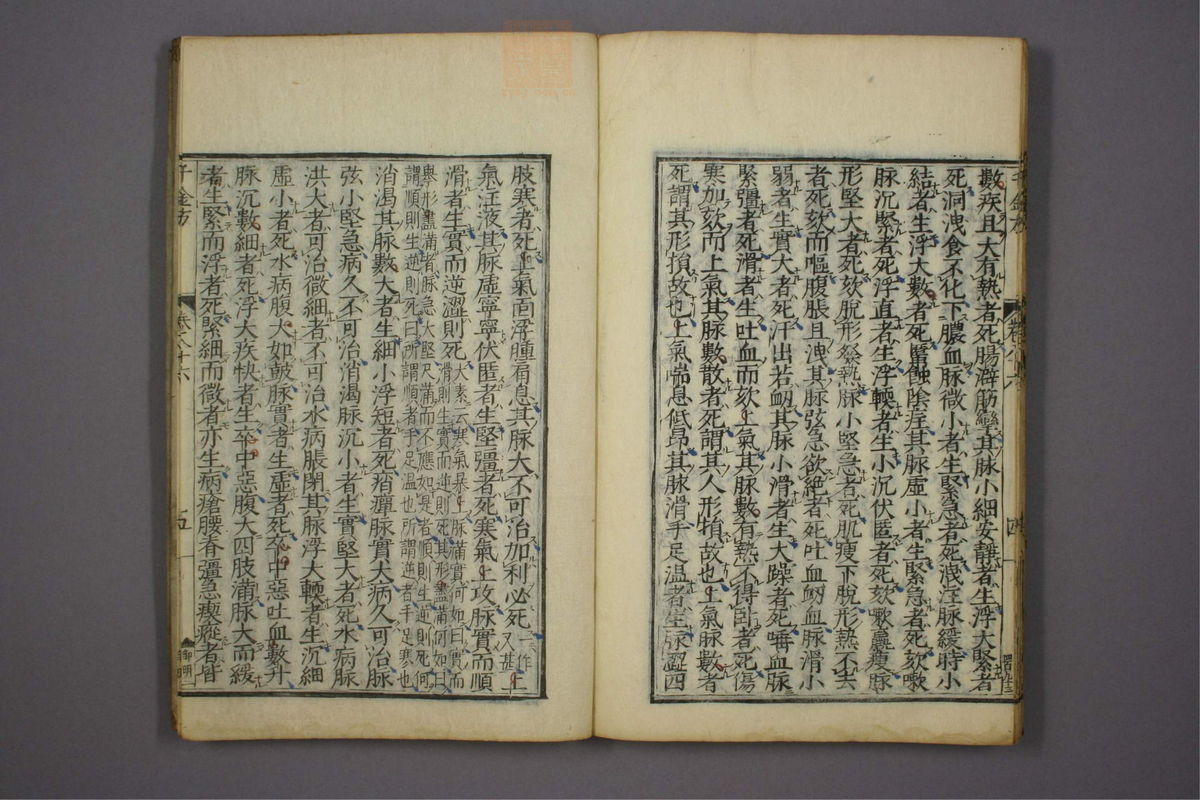 數疾且大有熱者死腸澼筋攣其脉小細安靜者生浮大緊者
死洞洩食不化下膿血脉微小者生緊急者死洩注脉緩時小
結者生浮大數者死䘌蝕陰疘其脉虛小者生緊急者死欬嗽
脉沉緊者死浮直者生浮輭者生小沉伏匿者死欬嗽羸瘦脉
形堅大者死欬脫形發熱脉小堅急者死肌瘦下脫形熱不去
者死欬而嘔腹脹且洩其脉弦急欲絕者死吐血衂血脉滑小
弱者生實大者死汗出若衂其脉小滑者生大躁者死唾血脉
緊彊者死滑者生吐血而欬上氣其脉數有熱不得臥者死傷
寒加欬而上氣其脉數散者死謂其人形損故也上氣脉數者
死謂其形損故也上氣喘息低昂其脉滑手足溫者生脉澀四
四
肢寒者死上氣面浮腫肩息其脉大不可治加利必死一作又甚上
氣注液其脉虛寧寧伏匿者生堅彊者死寒氣上攻脉實而順
滑者生實而逆澀則死太素云寒氣暴上脉滿實何如曰實而滑則生實而逆則死其形盡滿何如曰
舉形盡滿者脉急大堅尺滿而不應如是者順則生逆則死何謂順則生逆則死曰所謂順者手足溫也所謂逆者手足寒也
消渴其脉數大者生細小浮短者死痟癉脉實大病久可治脉
弦小堅急病久不可治消渴脉沉小者生實堅大者死水病脉
洪大者可治微細者不可治水病脹閉其脉浮大輭者生沉細
虛小者死水病腹大如皷脉實者生虛者死卒中惡吐血數升
脉沉數細者死浮大疾快者生卒中惡腹大四肢滿脉大而緩
者生緊而浮者死緊細而微者亦生病瘡腰脊彊急瘈瘲者皆
千金方
卷二十八
五